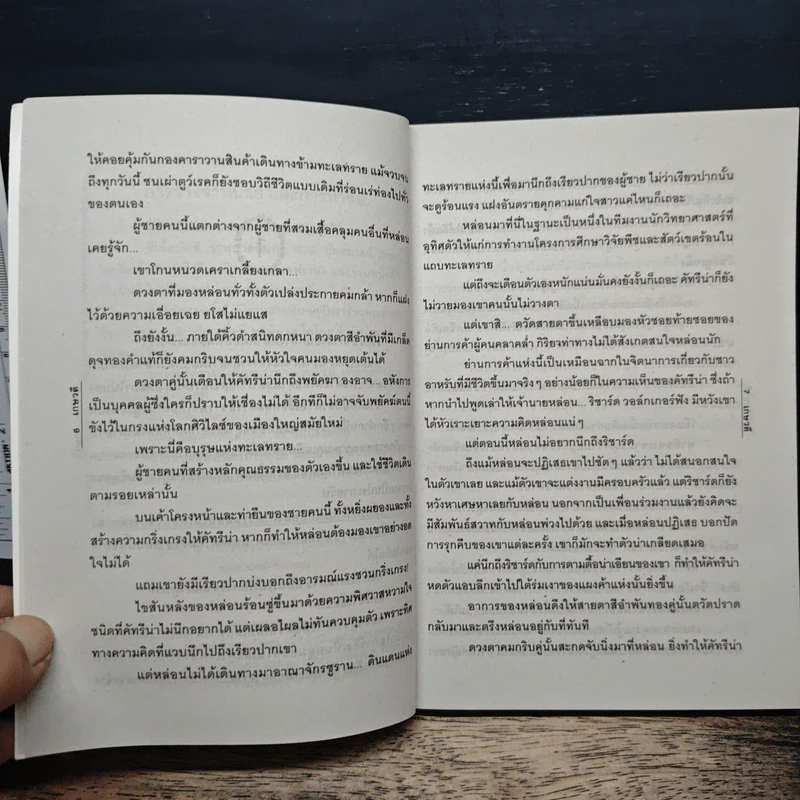 ให้คอยคุ้มกันกองคาราวานสินค้าเดินทางข้ามทะเลทราย แม้จวบจน
ถึงทุกวันนี้ ชนเผ่าตูว์เรคก็ยังชอบวิถีชีวิตแบบเดิมที่ร่อนเร่ท่องไปทั่ว
ของตนเอง
ผู้ชายคนนี้แตกต่างจากผู้ชายที่สวมเสื้อคลุมคนอื่นที่หล่อน
เคยรู้จัก...
เขาโกนหนวดเคราเกลี้ยงเกลา...
ดวงตาที่มองหล่อนทั่วทั้งตัวเปล่งประกายคมกล้า หากก็แฝง
ไว้ด้วยความเอื่อยเฉย ยโสไม่แยแส
ถึงยังงั้น... ภายใต้คิ้วดำสนิทดกหนา ดวงตาสีอำพันที่มีเกล็ด
ดุจทองคำแท้ก็ยังคมกริบจนชวนให้หัวใจคนมองหยุดเต้นได้
ดวงตาคู่นั้นเตือนให้คัทรีน่านึกถึงพยัคฆา องอาจ... อหังการ
เป็นบุคคลผู้ซึ่งใครก็ปราบให้เชื่องไม่ได้ อีกทีก็ไม่อาจจับพยัคฆ์ตนนี้
ขังไว้ในกรงแห่งโลกศิวิไลซ์ของเมืองใหญ่สมัยใหม่
เพราะนี่คือบุรุษแห่งทะเลทราย...
ผู้ชายคนที่สร้างหลักคุณธรรมของตัวเองขึ้น และใช้ชีวิตเดิน
ตามรอยเหล่านั้น
บนเค้าโครงหน้าและท่ายืนของชายคนนี้ ทั้งหยิ่งผยองและทั้ง
สร้างความกริ่งเกรงให้คัทรีน่า หากก็ทำให้หล่อนต้องมองเขาอย่างอด
ใจไม่ได้
แถมเขายังมีเรียวปากบ่งบอกถึงอารมณ์แรงชวนกริ่งเกรง!
ไขสันหลังของหล่อนร้อนซู่ขึ้นมาด้วยความพิศวาสหวามใจ
ชนิดที่คัทรีน่าไม่นึกอยากได้ แต่เผลอไผลไม่ทันควบคุมตัว เพราะทิศ
ทางความคิดที่แวบนึกไปถึงเรียวปากเขา
แต่หล่อนไม่ได้เดินทางมาอาณาจักรซูราน... ดินแดนแห่ง
6 เกษวดี
ทะเลทรายแห่งนี้เพื่อมานึกถึงเรียวปากของผู้ชาย ไม่ว่าเรียวปากนั้น
จะดูร้อนแรง แฝงอันตรายคุกคามแก่ใจสาวแค่ไหนก็เถอะ
หล่อนมาที่นี่ในฐานะเป็นหนึ่งในทีมงานนักวิทยาศาสตร์ที่
อุทิศตัวให้แก่การทำงานโครงการศึกษาวิจัยพืชและสัตว์เขตร้อนใน
แถบทะเลทราย
แต่ถึงจะเตือนตัวเองหนักแน่นมั่นคงยังงั้นก็เถอะ คัทรีน่าก็ยัง
ไม่วายมองเขาคนนั้นไม่วางตา
แต่เขาสิ... ตวัดสายตาขึ้นเหลือบมองหัวซอยท้ายซอยของ
ย่านการค้าผู้คนคลาคล่ำ กิริยาท่าทางไม่ได้สังเกตสนใจหล่อนนัก
ย่านการค้าแห่งนี้เป็นเหมือนฉากในจิตนาการเกี่ยวกับชาว
อาหรับที่มีชีวิตขึ้นมาจริงๆ อย่างน้อยก็ในความเห็นของคัทรีน่า ซึ่งถ้า
หากนำไปพูดเล่าให้เจ้านายหล่อน... ริชาร์ด วอล์กเกอร์ฟัง มีหวังเขา
ได้หัวเราะเยาะความคิดหล่อนแน่ๆ
แต่ตอนนี้หล่อนไม่อยากนึกถึงริชาร์ด
ถึงแม้หล่อนจะปฏิเสธเขาไปชัดๆ แล้วว่า ไม่ได้สนอกสนใจ
ในตัวเขาเลย และแม้ตัวเขาจะแต่งงานมีครอบครัวแล้ว แต่ริชาร์ดก็ยัง
หวังหาเศษหาเลยกับหล่อน นอกจากเป็นเพื่อนร่วมงานแล้วยังคิดจะ
มีสัมพันธ์สวาทกับหล่อนพ่วงไปด้วย และเมื่อหล่อนปฏิเสธ บอกปัด
การรุกคืบของเขาแต่ละครั้ง เขาก็มักจะทำตัวน่าเกลียดเสมอ
แค่นึกถึงริชาร์ดกับการตามตื้อน่าเอียนของเขา ก็ทำให้คัทรีน่า
หดตัวแอบลึกเข้าไปใต้ร่มเงาของแผงค้าแห่งนั้นยิ่งขึ้น
อาการของหล่อนดึงให้สายตาสีอำพันทองคู่นั้นตวัดปราด
กลับมาและตรึงหล่อนอยู่กับที่ทันที
ดวงตาคมกริบคู่นั้นสะกดจับนิ่งมาที่หล่อน ยิ่งทำให้คัทรีน่า
7 เกษวดี